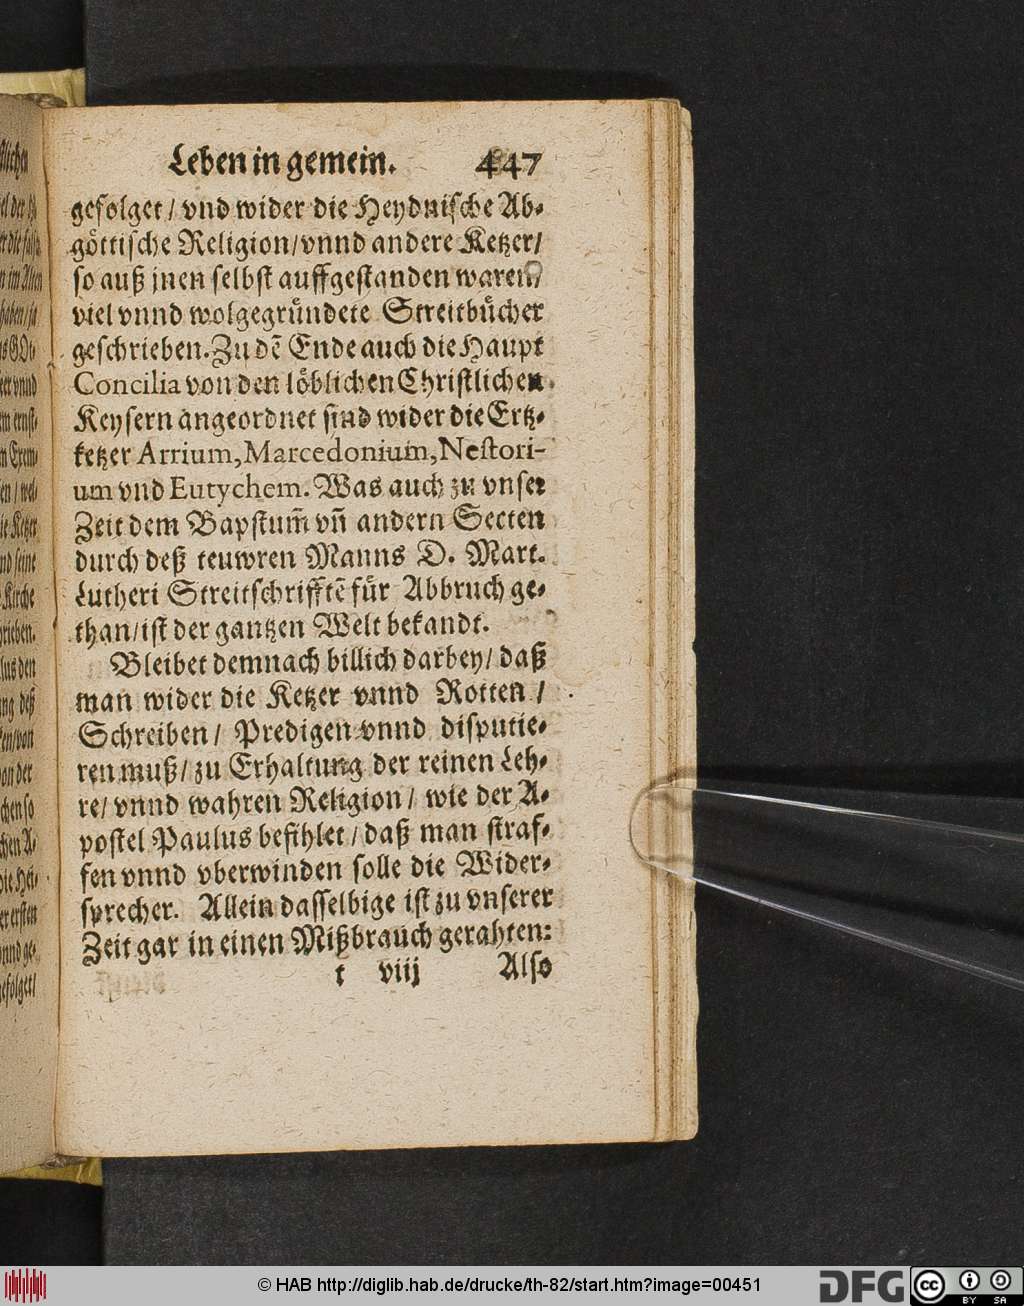 Leben in gemein. 447
gefolget / vnd wider die Heydnische Ab-
göttische Religion/ vnnd andere Ketzer/
so auß jnen selbst auffgestanden waren/
viel vnnd wolgegründete Streitbücher
geschrieben. Zu dē Ende auch die Haupt
Concilia von den löblichen Christlichen
Keysern angeordnet sind wider die Ertz-
ketzer Arrium, Marcedonium, Nestori-
um vnd Eutychem. Was auch zu vnser
Zeit dem Bapstum̄ vn̄ andern Secten
durch deß teuwren Manns D. Mart.
Lutheri Streitschrifftē für Abbruch ge-
than/ ist der gantzen Welt bekandt.
Bleibet demnach billich darbey/ daß
man wider die Ketzer vnnd Rotten /
Schreiben / Predigen vnnd disputie-
ren muß/ zu Erhaltung der reinen Leh-
re/ vnnd wahren Religion / wie der A-
postel Paulus befihlet / daß man straf-
fen vnnd vberwinden solle die Wider-
sprecher. Allein dasselbige ist zu vnserer
Zeit gar in einen Mißbrauch gerahten:
t viij Also
© HAB http://diglib.hab.de/drucke/th-82/start.htm?image=00451
DFG
cc
BY SA